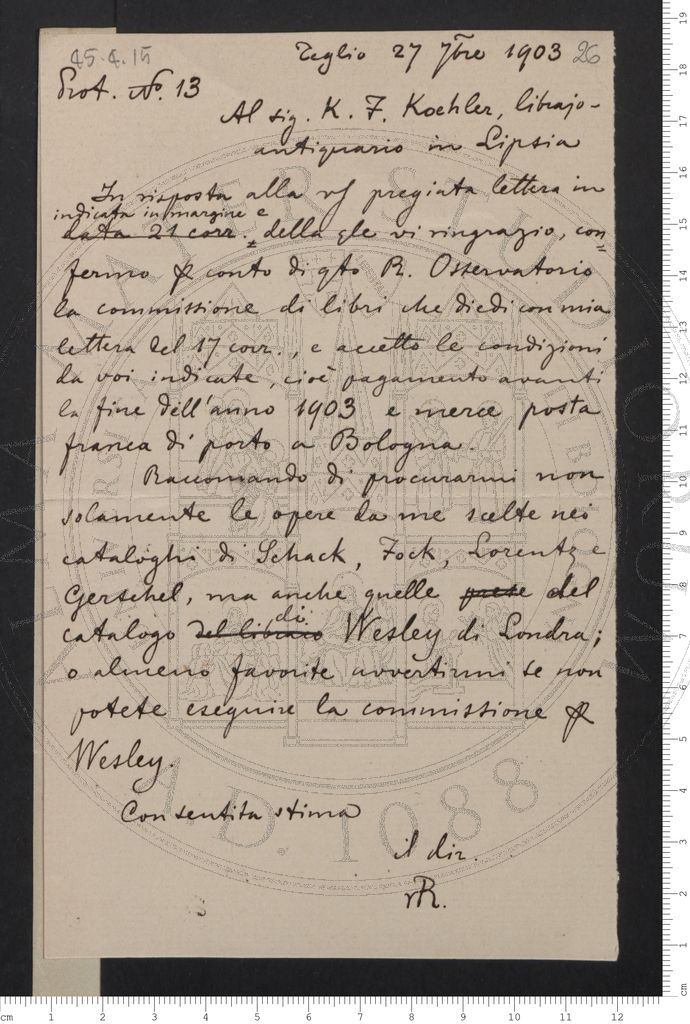 45.4.15
Teglio 27 7bre 1903 26
Prot. No. 13
Al sig. K. F. Koehler, librajo-
antiquario in Lipsia
In risposta alla vs pregiata lettera in
indicata in margine e
data 21 corr. della qle vi ringrazio, con=
fermo conto di qto R. Osservatorio
la commissione di libri che diedi con mia
lettera del 17 corr., e accetto le condizioni
da voi indicate, cioè pagamento avanti
la fine dell'anno 1903 e merce posta
franca di porto a Bologna.
Raccomando di procurarmi non
solamente le opere da me scelte nei
cataloghi di Schack, Fock, Lorentz e
Gerschel, ma anche quelle del
di
catalogo del libraio Wesley di Londra;
o almeno favorite avvertirmi se non
potete eseguire la commissione
Wesley.
Con sentita stima
il dir.
MR.
ALMA MATER STUDIORUM
A.D. 1088